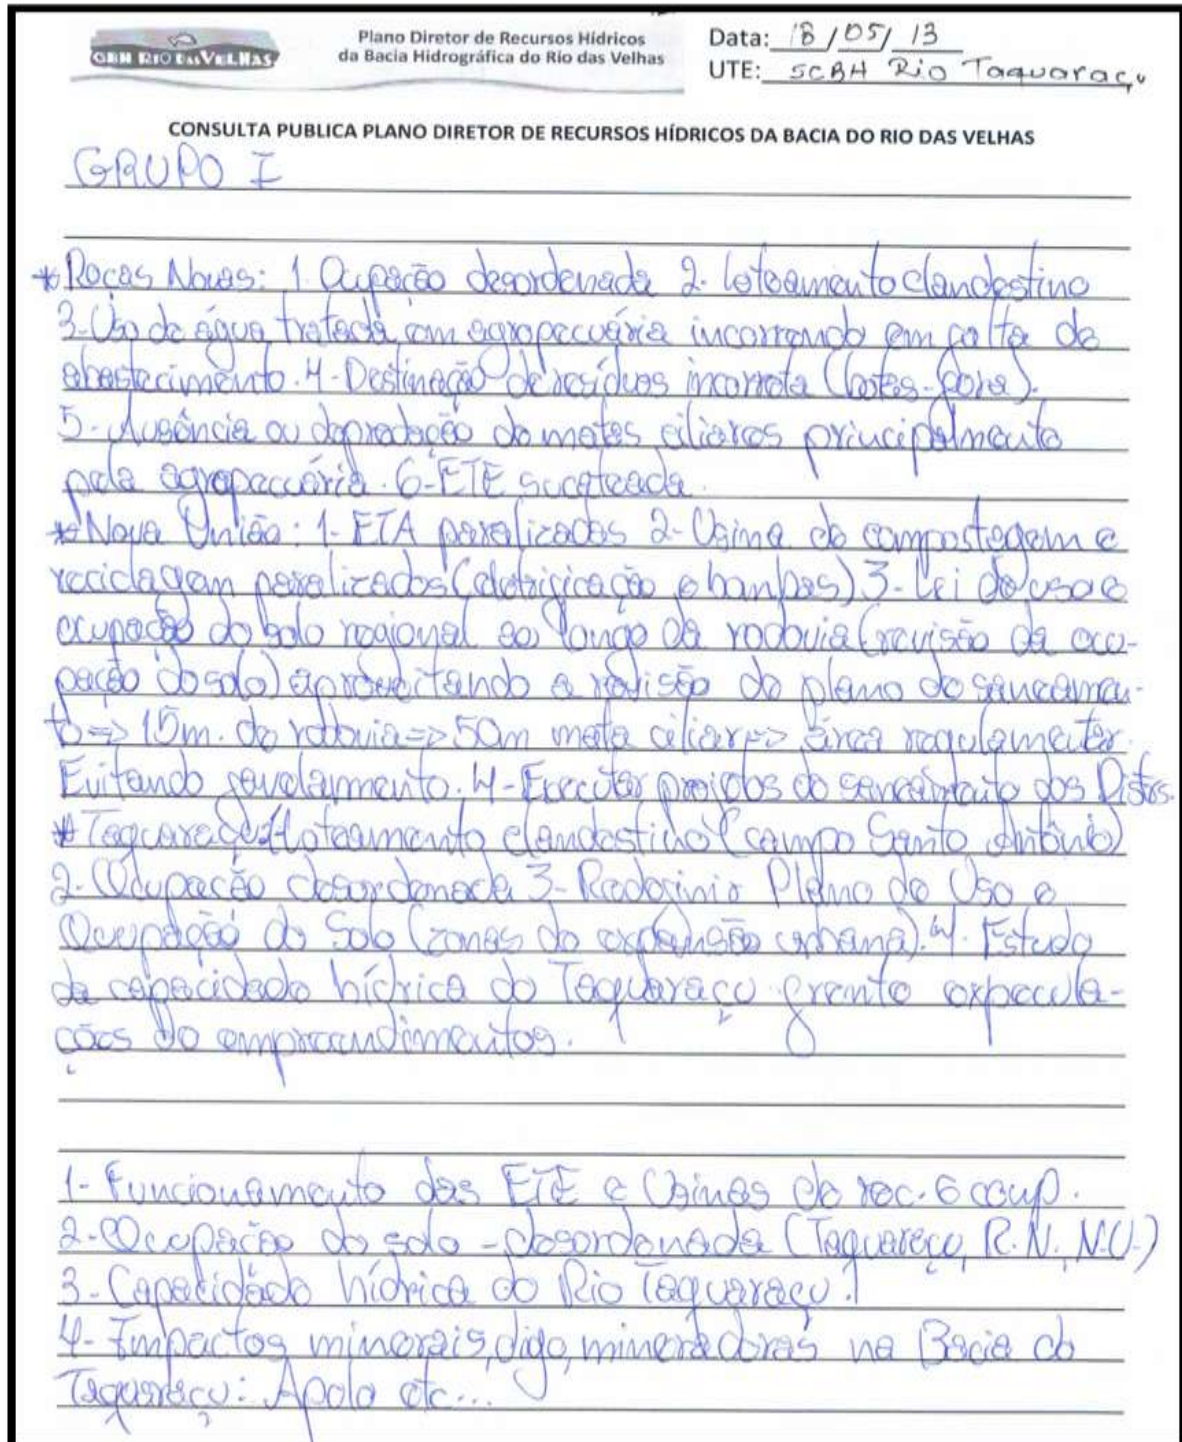 CBH RIO DAS VELHAS
Plano Diretor de Recursos Hídricos
da Bacia Hidrográfica do Rio das Velhas
Data: 18/05/13
UTE: SCBH Rio Taquaraçu
CONSULTA PUBLICA PLANO DIRETOR DE RECURSOS HÍDRICOS DA BACIA DO RIO DAS VELHAS
GRUPO I
* Roças Novas: 1. Ocupação desordenada 2. loteamento clandestino
3-Uso de água tratada em agropecuária incorrendo em falta de
abastecimento. 4-Destinação de resíduos incorreta (botas-fora).
5-Ausência ou depredação de matas ciliares principalmente
pela agropecuária. 6-ETE sucateada.
* Nova União: 1-ETA paralizadas 2-Usina de compostagem e
reciclagem paralizados ( e bombas) 3-Lei de uso e
ocupação do solo regional ao longo da rodovia (revisão da ocu-
pação do solo) aproveitando a revisão do plano de saneamen-
to => 15m. da rodovia => 50m mata ciliar => área regulamentar.
Evitando . 4-Executar projetos de saneamento dos
* Taquaraçu: loteamento clandestino (campo Santo Antônio)
2-Ocupação desordenada 3-Redefinir Plano de Uso e
Ocupação do Solo (zonas de expansão urbana). 4. Estudo
da capacidade hídrica do Taquaraçu frente expecula-
ções de empreendimentos.
1-Funcionamento das ETE e Usinas de rec. e comp.
2-Ocupação do solo - desordenada (Taquaraçu, R.N., N.U.)
3-Capacidade hídrica do Rio Taquaraçu.
4-Impactos minerais, digo, mineradoras na Bacia do
Taquaraçu: Apolo etc...